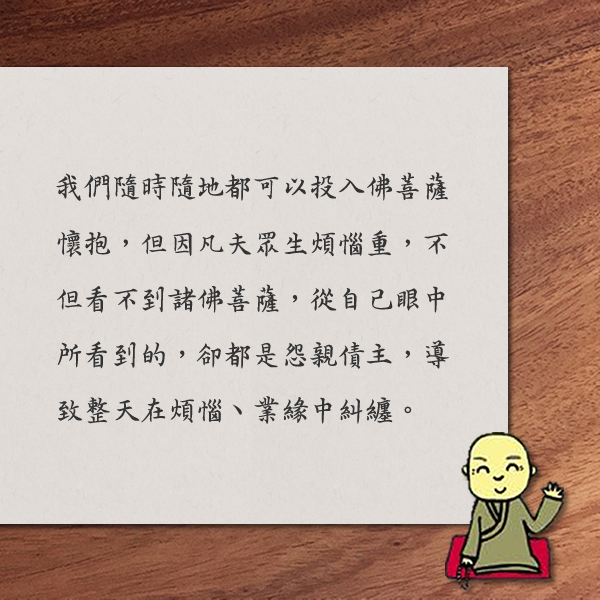 我們隨時隨地都可以投入佛菩薩
懷抱，但因凡夫眾生煩惱重，不
但看不到諸佛菩薩，從自己眼中
所看到的，卻都是怨親債主，導
致整天在煩惱、業緣中糾纏。